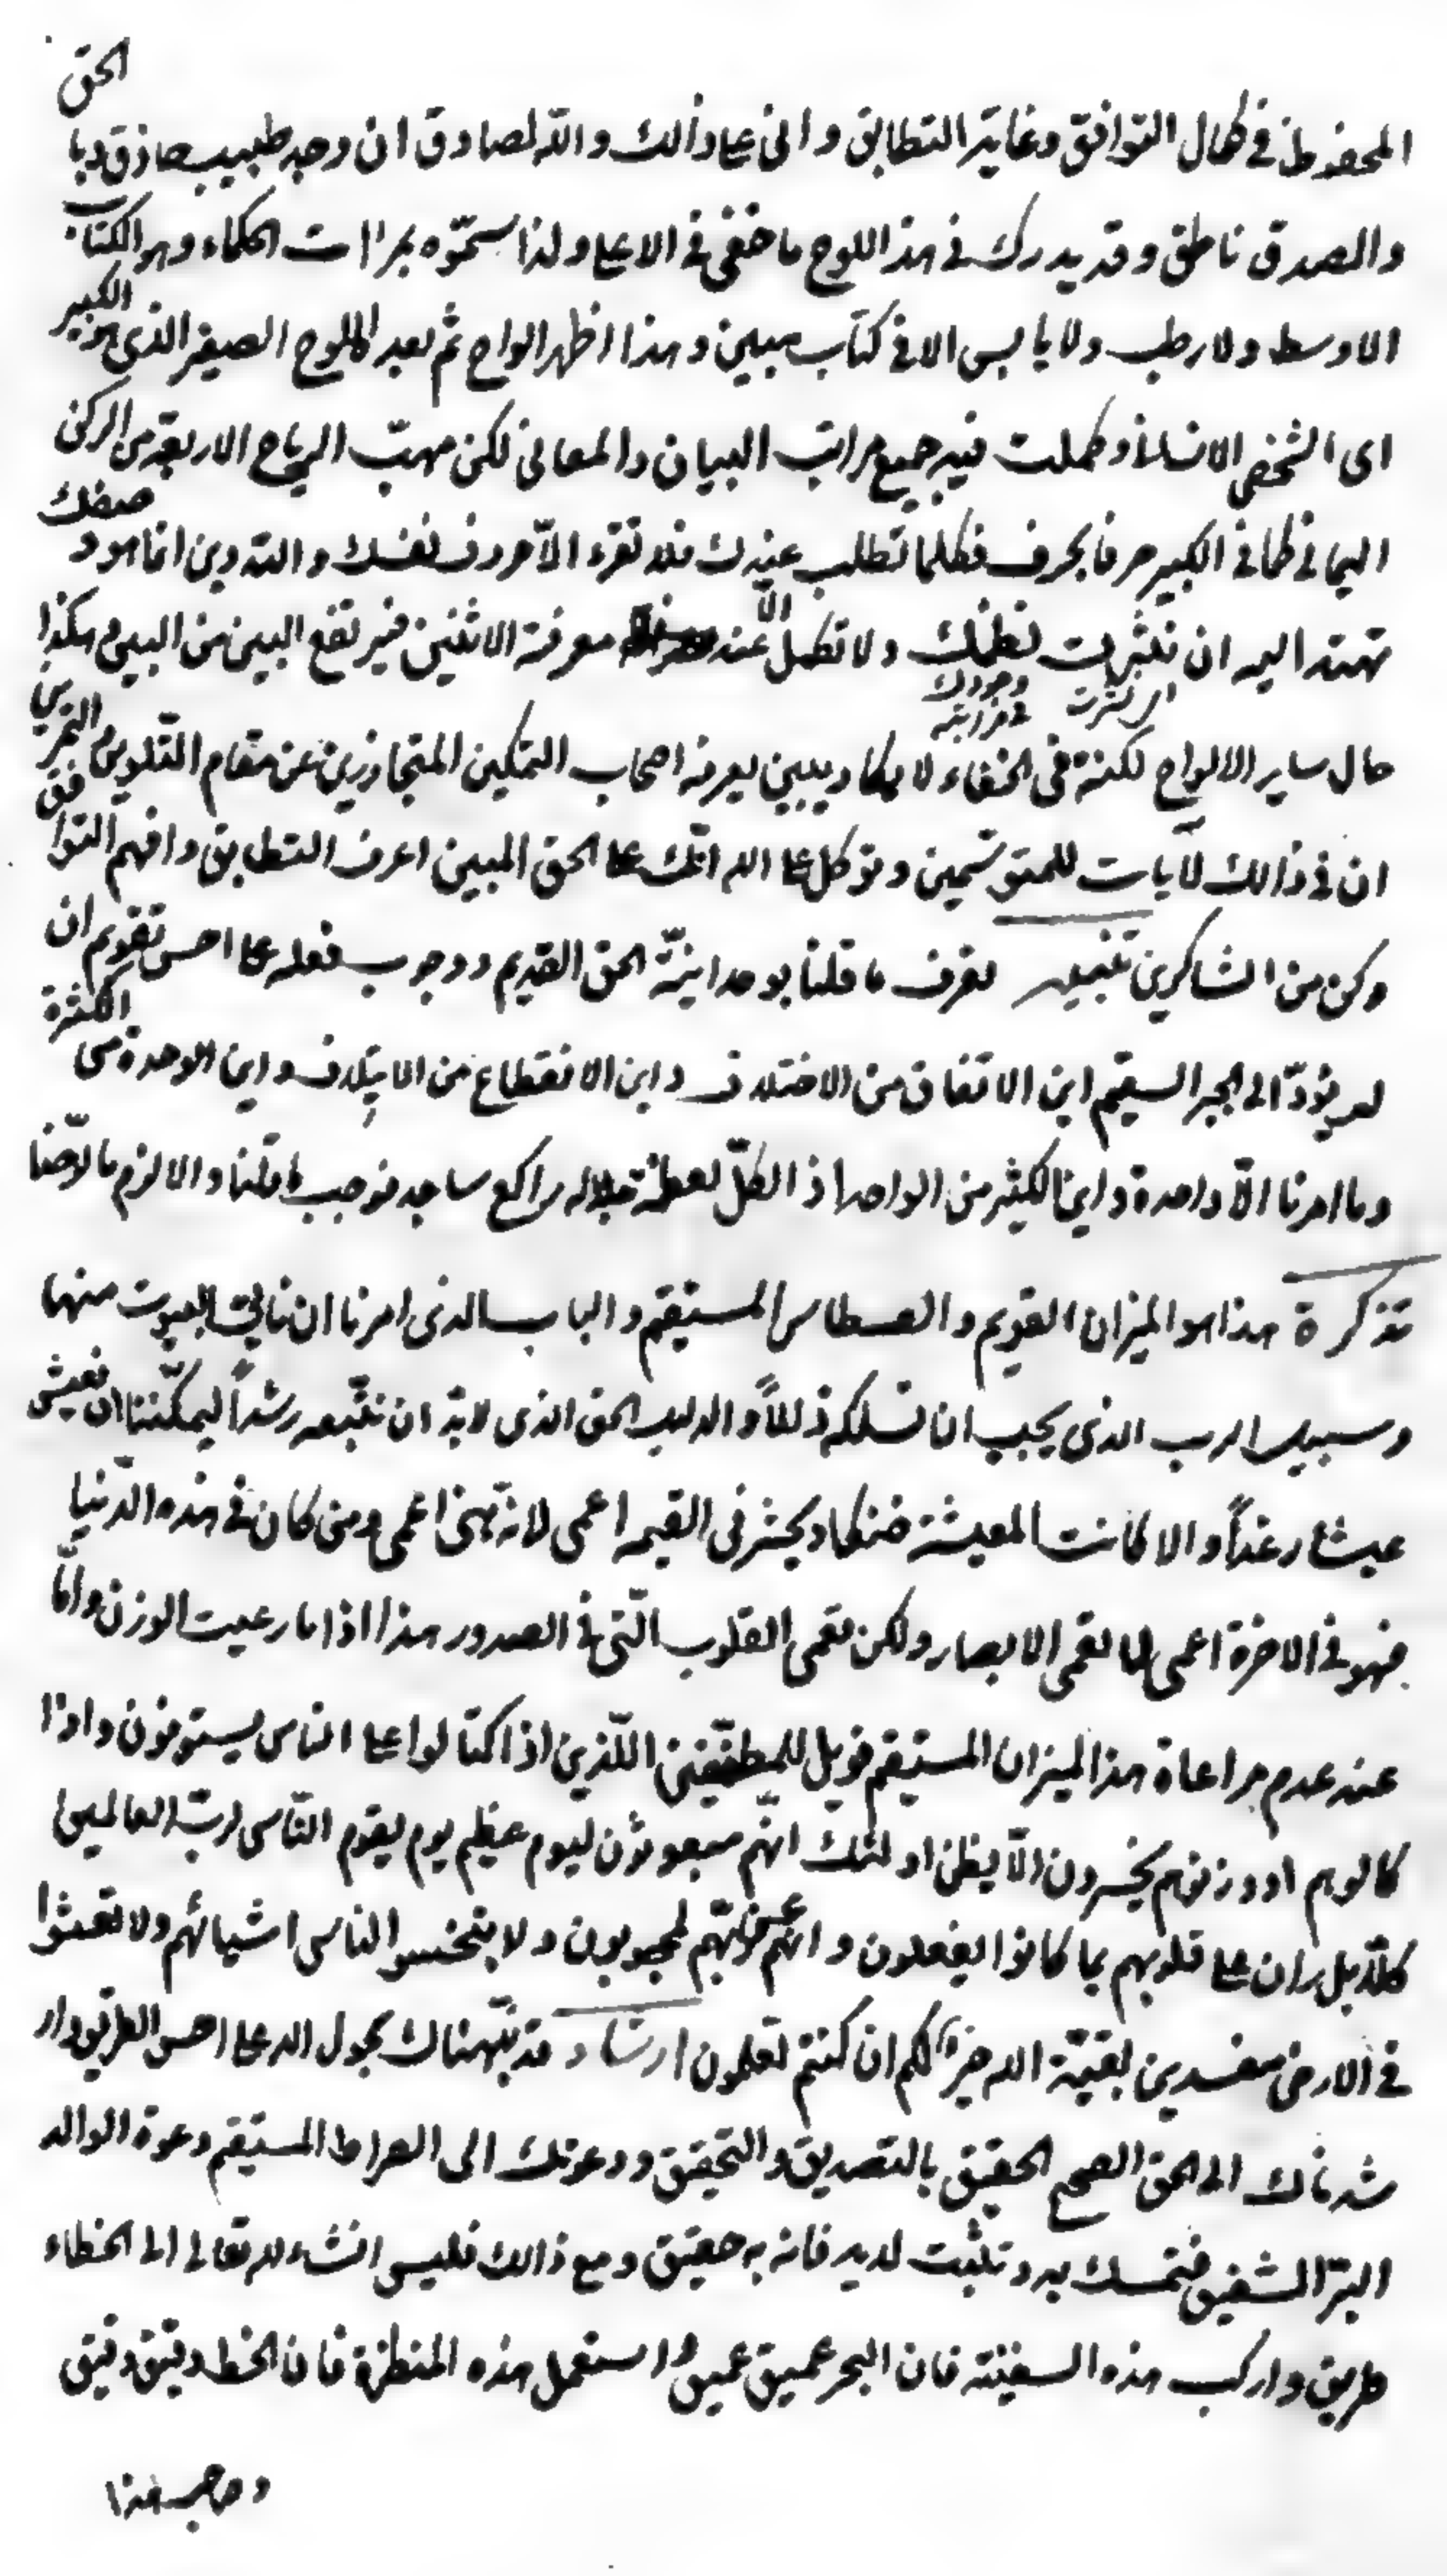 المحفوظ في كمال التوافق وغاية التطابق واني على ذالك والله لصادق ان وجد طبيب حاذق وبالحق
والصدق ناطق وقد يدرك في هذا اللوح ما خفي في الاعلى ولذا سموه بمرات الحكماء وهو الكتاب
الاوسط ولا رطب ولا يابس الا في كتاب مبين وهذا اظهر الواح ثم بعد اللوح الصغير الذي هو الكبير
اى الشخص الانساني وكملت فيه جميع مراتب البيان والمعاني لكن مهبّ الرياح الاربعة من الركن
اليماني كما في الكبير حرفا بحرف فكلما تطلب عندك فلا تقرء الّا حروف نفسك والتدوين انما هو صفك
تهتد اليه ان نثرت نظمك ولا تكمل الّا عند معرفة الاثنين فيرتفع البين من البين وهكذا
اى نثرت وجودك في مراتبه
حال ساير الالواح لكنه في الخفاء لا يكاد يبين يعرفه اصحاب التمكين المتجاوزين عن مقام التلوين
ان في ذالك لآيات للمتوسّمين وتوكل على الله انّك على الحق المبين اعرف التطابق وافهم التوافق
وكن من الشاكرين تنبيه تعرف ما قلنا بوحدانيّة الحق القديم ووجوب فعله على احسن تقويم ان
لم يؤدّ الى الجبر السقيم اين الاتفاق من الاختلاف واين الانقطاع من الايتلاف واين الوحدة من الكثرة
وما امرنا الّا واحدة واين الكثير من الواحد اذ الكلّ لعظمة جلاله راكع ساجد فوجب ما قلنا والا لزم ما
تذكرة هذا هو الميزان القويم والقسطاس المستقيم والباب الذي امرنا ان ناتي البيوت منها
وسبيل الرب الذي يجب ان نسلكه ذللاً والدليل الحق الذي لا بدّ ان نتّبعه رشداً ليمكّننا ان نعيش
عيشا رغداً والا كانت المعيشة ضنكا ويحشر في القيمه اعمى لانه اعمى ومن كان في هذه الدّنيا
فهو في الاخرة اعمى لا تعمى الابصار ولكن تعمى القلوب الّتى في الصدور هذا اذا ما رعيت الوزن وامّا
عند عدم مراعاة هذا الميزان المستقيم فويل للمطفّفين اللّذين اذا اكتالوا على الناس يستوفون واذا
كالوهم او وزنوهم يخسرون الّا يظن اولئك انهّم مبعوثون ليوم عظيم يوم يقوم النّاس لربّ العالمين
كلّا بل ران على قلوبهم بما كانوا يفعلون وانهم عن ربّهم لمحجوبون ولا يبخسوا الناس اشيائهم ولا تعثوا
في الارض مفسدين بقيّة الله خير لكم ان كنتم تعلمون ارشاد قد نبّهناك بحول الله على احسن الطريق وار
شدناك الى الحق الصحيح الحقيق بالتصديق والتحقيق ودعوتك الى الصراط المستقيم دعوة الوالد
البرّ الشفيق فتمسك به وتثبت لديه فانه به حقيق ومع ذالك فليس انشاء الله تعالى الى الخطاء
طريق واركب هذه السفينة فان البحر عميق عميق واستعمل هذه المنظرة فان الخط دقيق دقيق
وصاحب هذا